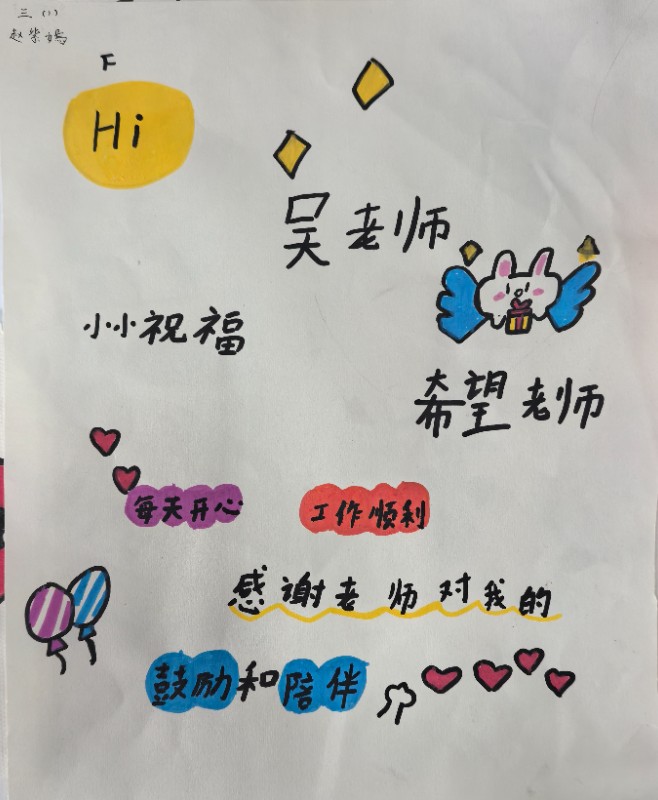 三（1）
赵紫嫣
F
Hi
吴老师
小小祝福
希望老师
每天开心
工作顺利
感谢老师对我的
鼓励和陪伴